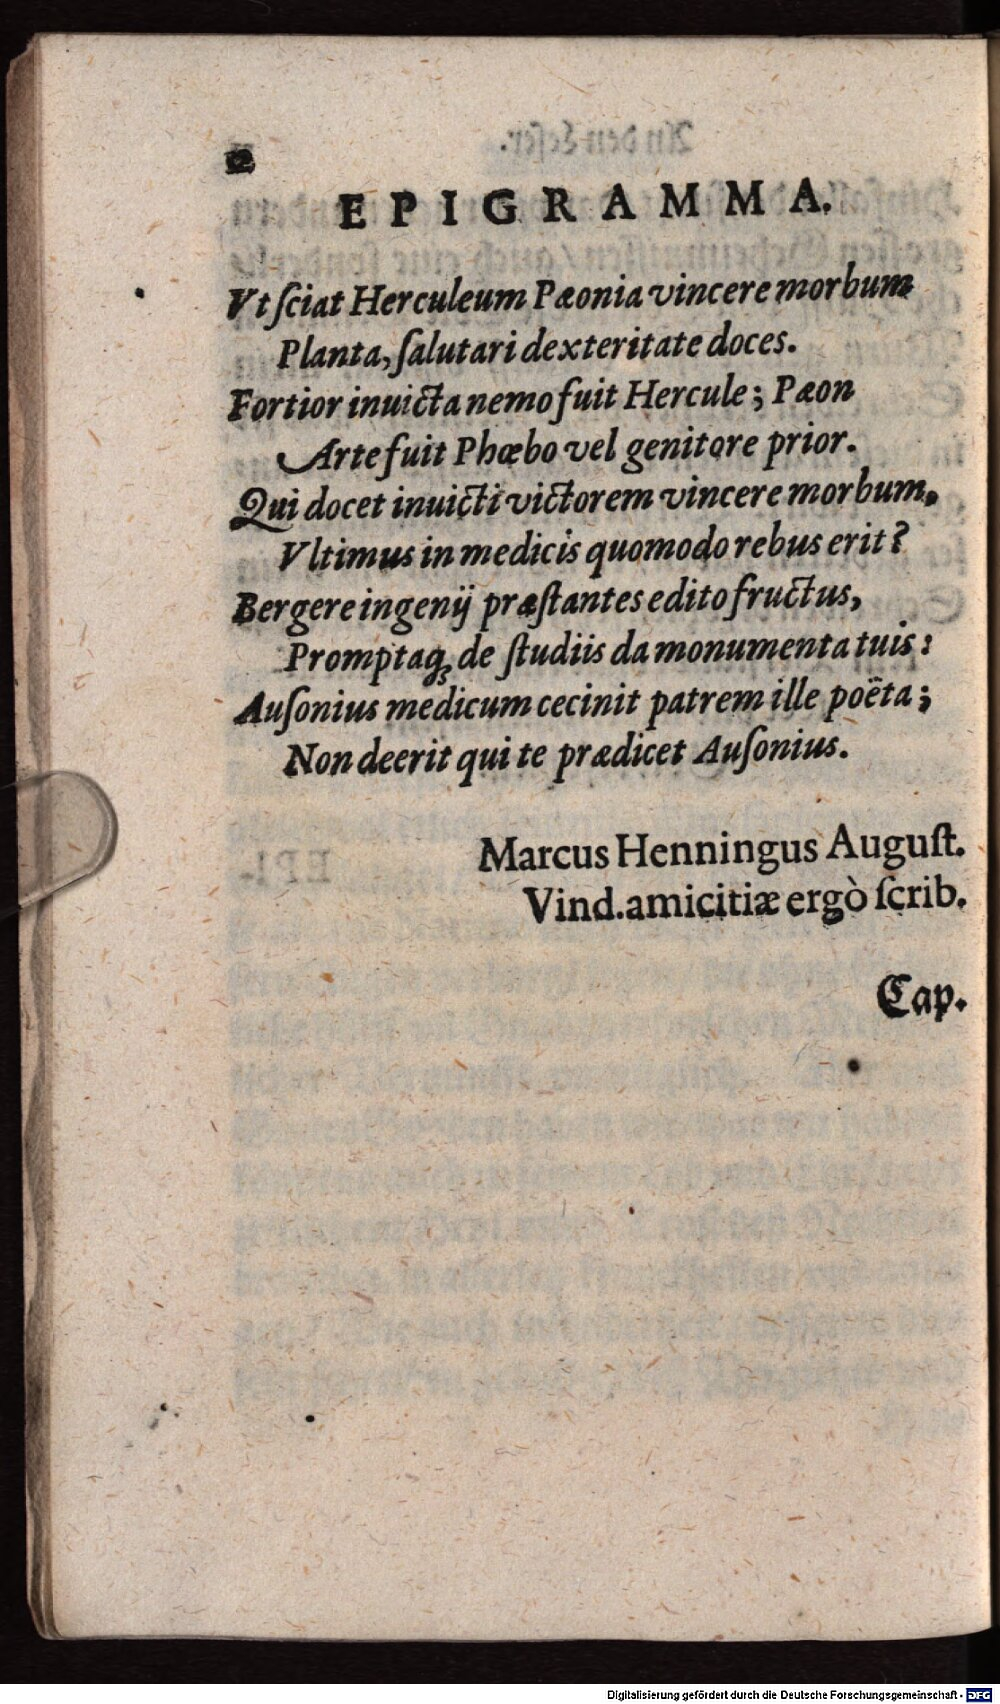 12
EPIGRAMMA.
Vt ſciat Herculeum Pæonia vincere morbum
Planta, ſalutari dexteritate doces.
Fortior inuicta nemo fuit Hercule; Pæon
Arte fuit Phœbo vel genitore prior.
Qui docet inuicti victorem vincere morbum,
Vltimus in medicis quomodo rebus erit?
Bergere ingenij præſtantes edito fructus,
Promptaqꝫ de ſtudiis da monumenta tuis:
Auſonius medicum cecinit patrem ille poëta;
Non deerit qui te prædicet Auſonius.
Marcus Henningus Auguſt.
Vind. amicitiæ ergò ſcrib.
Cap.
Digitalisierung gefördert durch die Deutsche Forschungsgemeinschaft - DFG